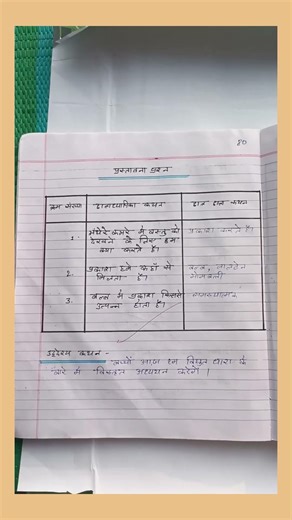 80
प्रस्तावना प्रश्न
क्रम संख्या छात्राध्यापिका कथन छात्र कथन
1. अंधेरे कमरे में वस्तु को प्रकाश करते है।
देखने के लिए हम
क्या करते है।
2. प्रकाश हमें कहाँ से बल्ब, लालटेन
मिलता है। मोमबत्ती
3. बल्ब में प्रकाश किससे समस्यात्मक
उत्पन्न होता है।
उद्देश्य कथन -
बच्चों आज हम विद्युत धारा के
बारे में विस्तृत अध्ययन करेगें।